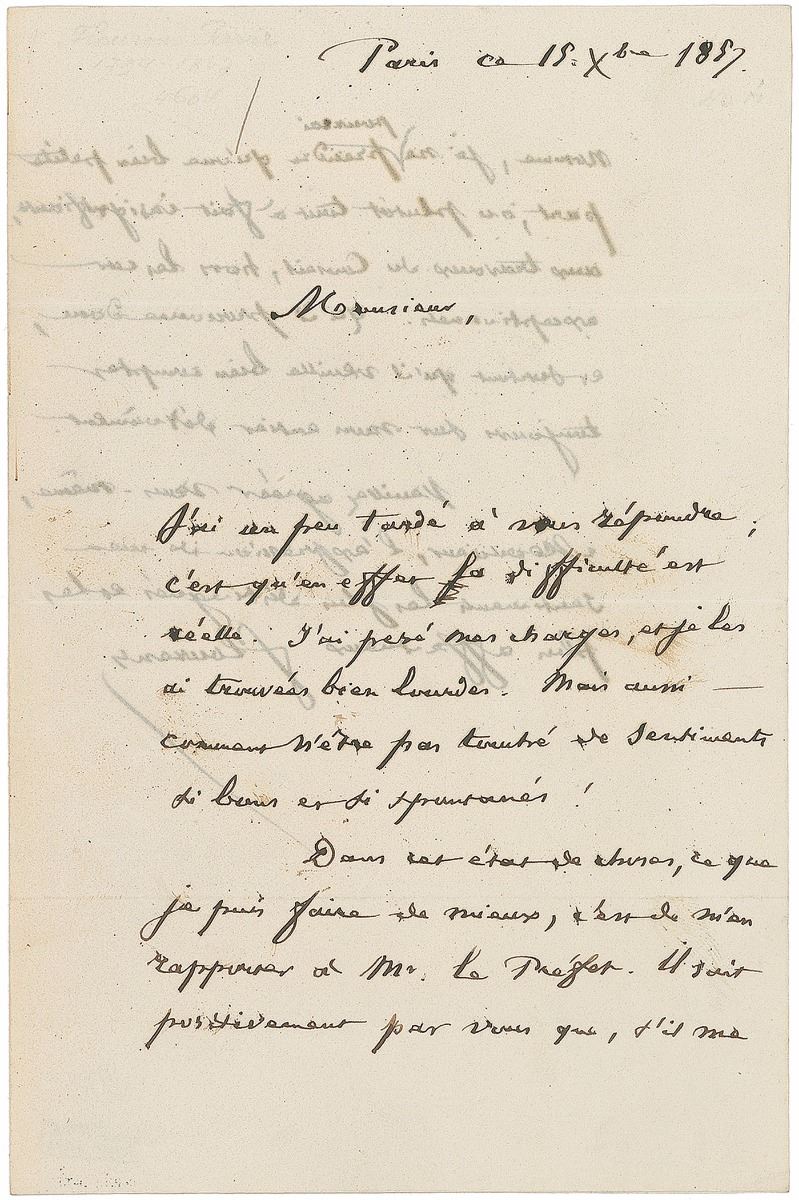 Paris ce 15. Xbre 1857.
Monsieur,
J'ai un peu tardé à vous répondre ;
c'est qu'en effet la difficulté est
réelle. J'ai pesé mes charges, et je les
ai trouvées bien lourdes. Mais aussi —
comment n'être pas touché de sentiments
si bons et si spontanés !
Dans cet état de choses, ce que
je puis faire de mieux, c'est de m'en
rapporter à Mr. le Préfet. Il sait
positivement par vous que, s'il me